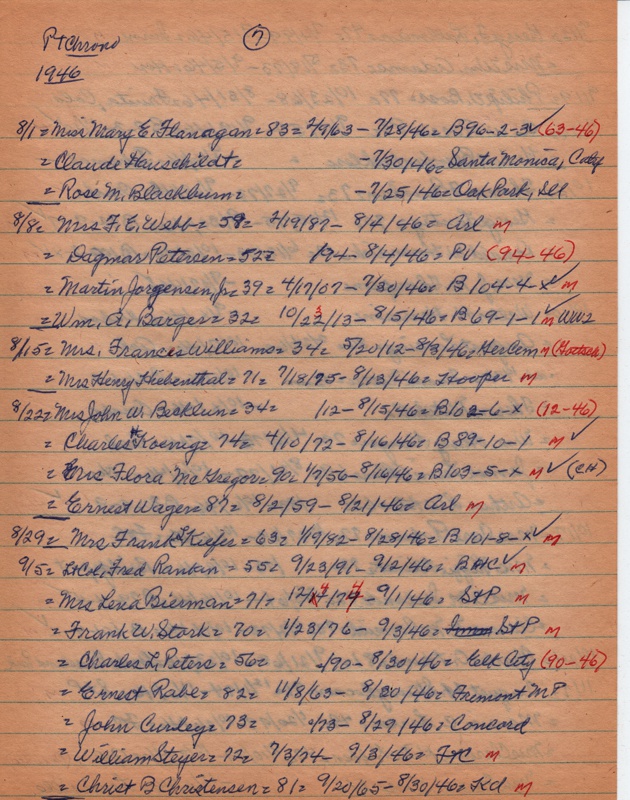 Pt Chrono ⑦
1946
8/1 = Miss Mary E. Flanagan = 83 = 2/9/63 - 7/28/46 = B96-2-3 ✓ (63-46)
= Claude Hauschildt = - 7/30/46 = Santa Monica, Calif
= Rose M. Blackburn = - 7/25/46 = Oak Park, Ill
8/8 = Mrs F. E. Webb = 59 = 2/19/87 - 8/4/46 = Arl m
= Dagmar Petersen = 52 = /94 - 8/4/46 = PV (94-46)
= Martin Jorgensen, Jr = 39 = 4/17/07 - 7/30/46 = B104-4-x ✓ m
= Wm. A. Barges = 32 = 10/23/13 - 8/5/46 = B69-1-1 ✓ m WW2
8/15 = Mrs. Frances Williams = 34 = 5/20/12 - 8/3/46 = Herlem m
= Mrs Henry Hebenthal = 71 = 7/18/75 - 8/13/46 = Hooper m
8/22 = Mrs John W. Becklun = 34 = /12 - 8/15/46 = B102-6-x (12-46)
= Charles Koenig = 74 = 4/10/72 - 8/16/46 = B89-10-1 m ✓
= Mrs Flora McGregor = 90 = 1/7/56 - 8/16/46 = B103-5-x m ✓ (CH)
= Ernest Wager = 87 = 8/2/59 - 8/21/46 = Arl m
8/29 = Mrs Frank L Kiefer = 63 = 1/19/82 - 8/28/46 = B101-8-x ✓ m
9/5 = Lt Col, Fred Rankin = 55 = 9/23/91 - 9/2/46 = ✓ m
= Mrs Lena Bierman = 71 = 12/4/74 - 9/1/46 = St P m
= Frank W. Stork = 70 = 1/23/76 - 9/3/46 = St P m
= Charles L. Peters = 56 = /90 - 8/30/46 = Elk City (90-46)
= Ernest Rabe = 82 = 11/8/63 - 8/30/46 = Fremont m P
= John Curley = 73 = /73 - 8/29/46 = Concord
= William Steyer = 72 = 7/3/74 - 9/3/46 = m
= Christ B Christensen = 81 = 9/20/65 - 8/30/46 = Kd m